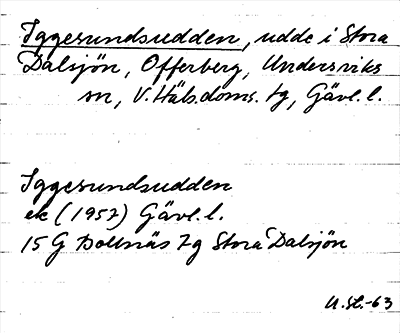 Iggesundsudden, udde i Stora
Dalsjön, Offerberg, Undersviks
sn, V. Häls. doms. tg, Gävl. l.
Iggesundsudden
ek (1957) Gävl. l.
15 G Bollnäs 7 g Stora Dalsjön
U. St. -63